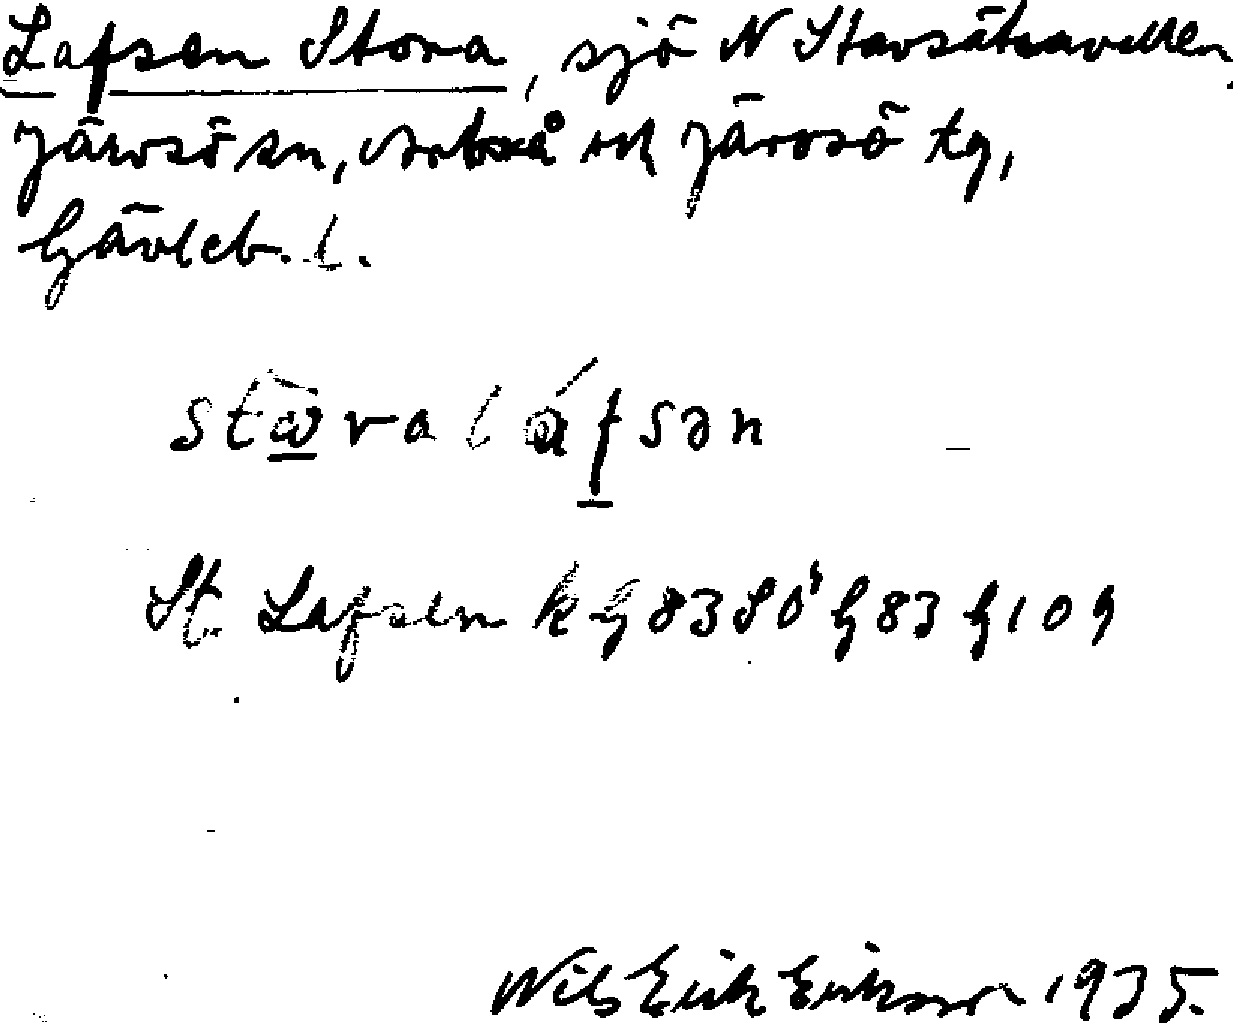 Lafsen Stora, sjö N Stavsätravallen,
Järvsö sn, Arbrå och Järvsö tg,
Gävleb. l.
stɷ̀ra láfsən
St. Lafsen k G 83 SÖ G 83 G 109
Nils Erik Eriksson 1935.